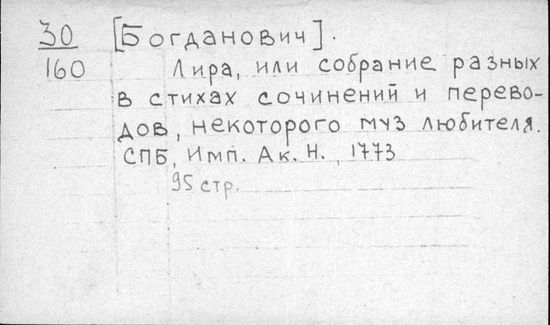 30 [Богданович].
160 Лира, или собрание разных
в стихах сочинений и перево-
дов, некоторого муз любителя.
СПБ, Имп. Ак. Н., 1773
95 стр.